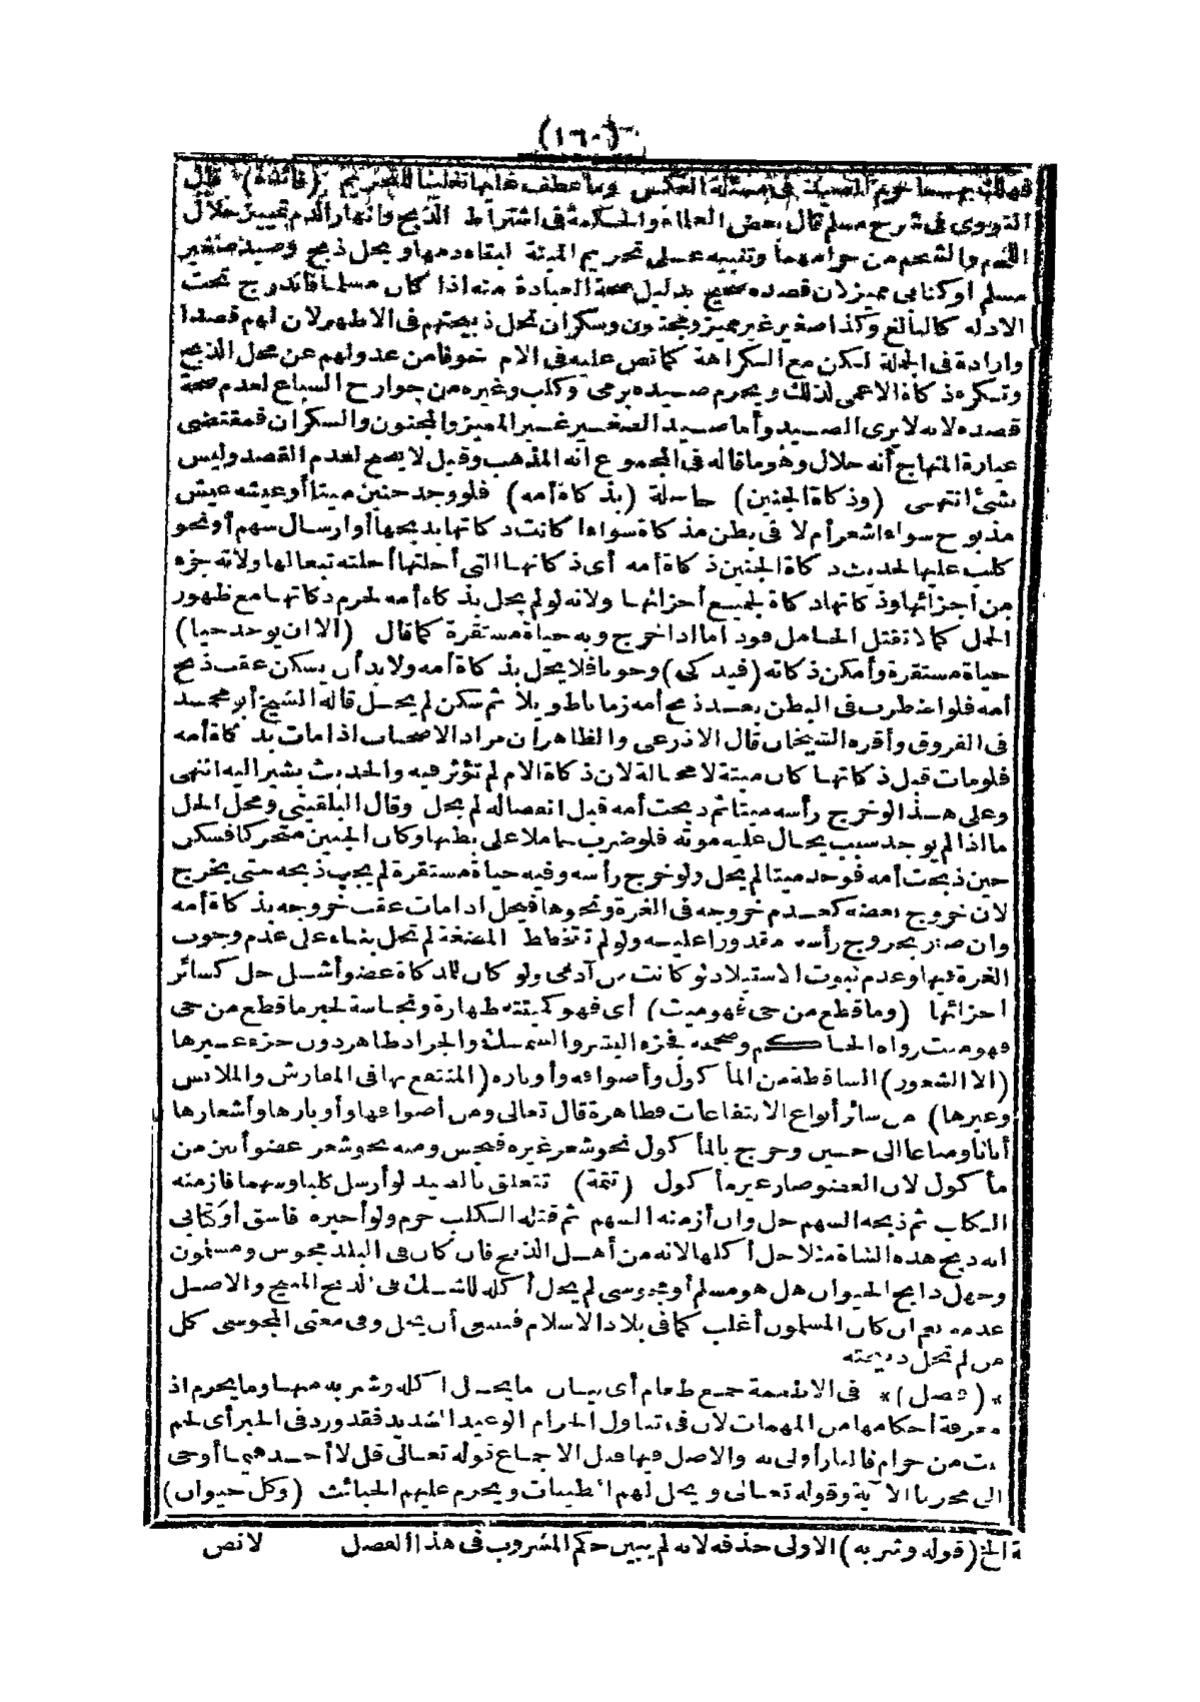 (١٦٠)
فهلك بهما حرم الصيد فى مسئلة العكس وما عطف عليها تغليبا للتحريم (فائدة) قال
النووى فى شرح مسلم قال بعض العلماء والحكمة فى اشتراط الذبح وانهار الدم تمييز حلال
اللحم والشحم من حرامهما وتنبيه على تحريم الميتة لبقاء دمها ويحل ذبح وصيد صغير
مسلم أو كتابى مميز لان قصده صحيح بدليل صحة العبادة منه اذا كان مسلما فاندرج تحت
الادلة كالبالغ وكذا صغير غير مميز ومجنون وسكران تحل ذبيحتهم فى الاظهر لان لهم قصدا
وارادة فى الجملة لكن مع الكراهة كما نص عليه فى الام خوفا من عدولهم عن محل الذبح
وتكره ذكاة الاعمى لذلك ويحرم صيده برمى وكلب وغيره من جوارح السباع لعدم صحة
قصده لانه لا يرى الصيد وأما صيد الصغير غير المميز والمجنون والسكران فمقتضى
عبارة المنهاج أنه حلال وهو ما قاله فى المجموع انه المذهب وقيل لا يصح لعدم القصد وليس
بشئ انتهى (وذكاة الجنين) حاصلة (بذكاة أمه) فلو وجد جنين ميتا أو عيشه عيش
مذبوح سواء اشعر أم لا فى بطن مذكاة سواء ا كانت ذكاتها بذبحها أو ارسال سهم أو نحو
كلب عليها لحديث ذكاة الجنين ذكاة أمه أى ذكاتها التى أحلتها أحلته تبعا لها ولانه جزء
من أجزائها وذكاتها ذكاة لجميع أجزائها ولانه لو لم يحل بذكاة أمه لحرم ذكاتها مع ظهور
الحمل كما لا تقتل الحامل قود أما اذا خرج وبه حياة مستقرة كما قال (الا ان يوجد حيا)
حياة مستقرة وأمكن ذكاته (فيذكى) وجوبا فلا يحل بذكاة أمه ولا بد أن يسكن عقب ذبح
أمه فلو اضطرب فى البطن بعد ذبح أمه زمانا طويلا ثم سكن لم يحل قاله الشيخ أبو محمد
فى الفروق وأقره الشيخان قال الاذرعى والظاهر أن مراد الاصحاب اذا مات بذكاة أمه
فلو مات قبل ذكاتها كان ميتة لا محالة لان ذكاة الام لم تؤثر فيه والحديث يشير اليه انتهى
وعلى هذا لو خرج رأسه ميتا ثم ذبحت أمه قبل انفصاله لم يحل وقال البلقينى ومحل الحل
ما اذا لم يوجد سبب يحال عليه موته فلو ضرب حاملا على بطنها وكان الجنين متحركا فسكن
حين ذبحت أمه فوجد ميتا لم يحل ولو خرج رأسه وفيه حياة مستقرة لم يجب ذبحه حتى يخرج
لان خروج بعضه كعدم خروجه فى الغرة ونحوها فيحل اذا مات عقب خروجه بذكاة أمه
وان صار بخروج رأسه مقدورا عليه ولو لم تتخطط المضغة لم تحل بناء على عدم وجوب
الغرة فيها وعدم ثبوت الاستيلاد لو كانت من آدمى ولو كان للمذكاة عضو أشل حل كسائر
اجزائها (وما قطع من حى فهو ميت) أى فهو كميتته طهارة ونجاسة لخبر ما قطع من حى
فهو ميت رواه الحاكم وصححه فجزء البشر والسمك والجراد طاهر دون جزء غيرها
(الا الشعور) الساقطة من المأكول وأصوافه وأوباره (المنتفع بها فى المفارش والملابس
وغيرها) من سائر أنواع الانتفاعات فطاهرة قال تعالى ومن أصوافها وأوبارها وأشعارها
أثاثا ومتاعا الى حين وخرج بالمأكول نحو شعر غيره فنجس ومنه نحو شعر عضو أبين من
مأكول لان العضو صار غير مأكول (تتمة) تتعلق بالصيد لو أرسل كلبا وسهما فازمنه
الكلب ثم ذبحه السهم حل وان أزمنه السهم ثم قتله الكلب حرم ولو أخبره فاسق أو كتابى
انه ذبح هذه الشاة مثلا حل أكلها لانه من أهل الذبح فان كان فى البلد مجوس ومسلمون
وجهل ذابح الحيوان هل هو مسلم أو مجوسى لم يحل أكله للشك فى الذبح المبيح والاصل
عدمه نعم ان كان المسلمون أغلب كما فى بلاد الاسلام فينبغى أن يحل وفى معنى المجوسى كل
من لم تحل ذبيحته
* (فصل) * فى الاطعمة جمع طعام أى بيان ما يحل اكله وشربه منها وما يحرم اذ
معرفة أحكامها من المهمات لان فى تناول الحرام الوعيد الشديد فقد ورد فى الخبر أى لحم
نبت من حرام فالنار أولى به والاصل فيها قبل الاجماع قوله تعالى قل لا أجد فيما أوحى
الى محرما الآية وقوله تعالى ويحل لهم الطيبات ويحرم عليهم الخبائث (وكل حيوان)
ة الخ (قوله وشربه) الاولى حذفه لانه لم يبين حكم المشروب فى هذا الفصل لا نص